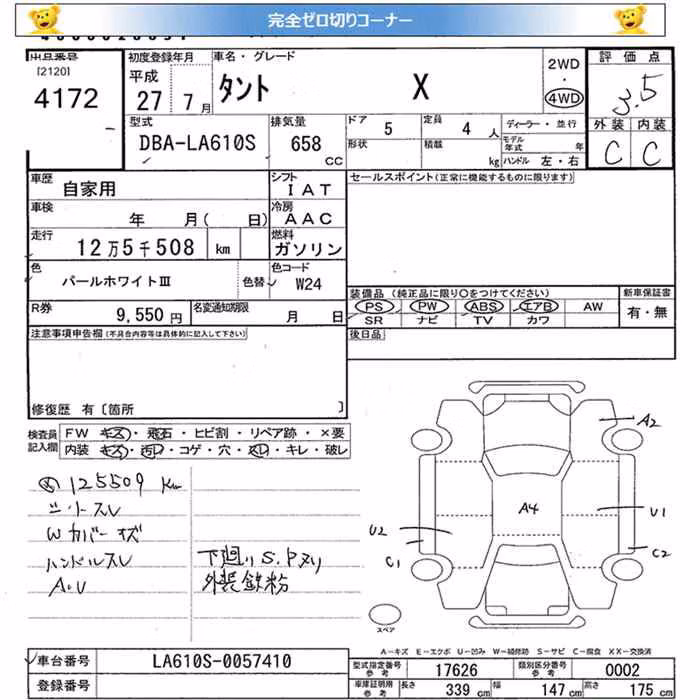 完全ゼロ切りコーナー
出品番号
[2120]
4172
初度登録年月
平成
27 7月
車名・グレード
タント X
2WD
・
4WD
評価点
3.5
外装 内装
C C
型式
DBA-LA610S
排気量
658
CC
ドア 5
形状
定員 4 人
積載 kg
ディーラー・並行
モデル年式 年
ハンドル 左・右
車歴
自家用
シフト
IAT
車検
年 月( 日)
冷房
AAC
走行
12万5千508 km
燃料
ガソリン
色
パールホワイトIII
色替
色コード
W24
R券
9,550円
名変通知期限
月 日
セールスポイント(正常に機能するものに限ります)
装備品 (純正品に限り○をつけてください)
新車保証書
PS PW ABS エアB AW
有・無
SR ナビ TV カワ
後日品
注意事項申告欄(不具合内容等は具体的に記入して下さい)
修復歴 有〔箇所 〕
検査員記入欄
FW キズ・飛石・ヒビ割・リペア跡・×要
内装 キズ・汚レ・コゲ・穴・スレ・キレ・破レ
125509 Km
シートスレ
Wカバーキズ
ハンドルスレ
A.U
下廻りS.Pヌリ
外装鉄粉
A2
A4
U1
U2
C1
C2
スペア
A-キズ E-エクボ U-凹み W-補修跡 S-サビ C-腐食 XX-交換済
車台番号
LA610S-0057410
登録番号
型式指定番号参考
17626
類別区分番号参考
0002
車庫証明用参考
長さ 339 cm 幅 147 cm 高さ 175 cm